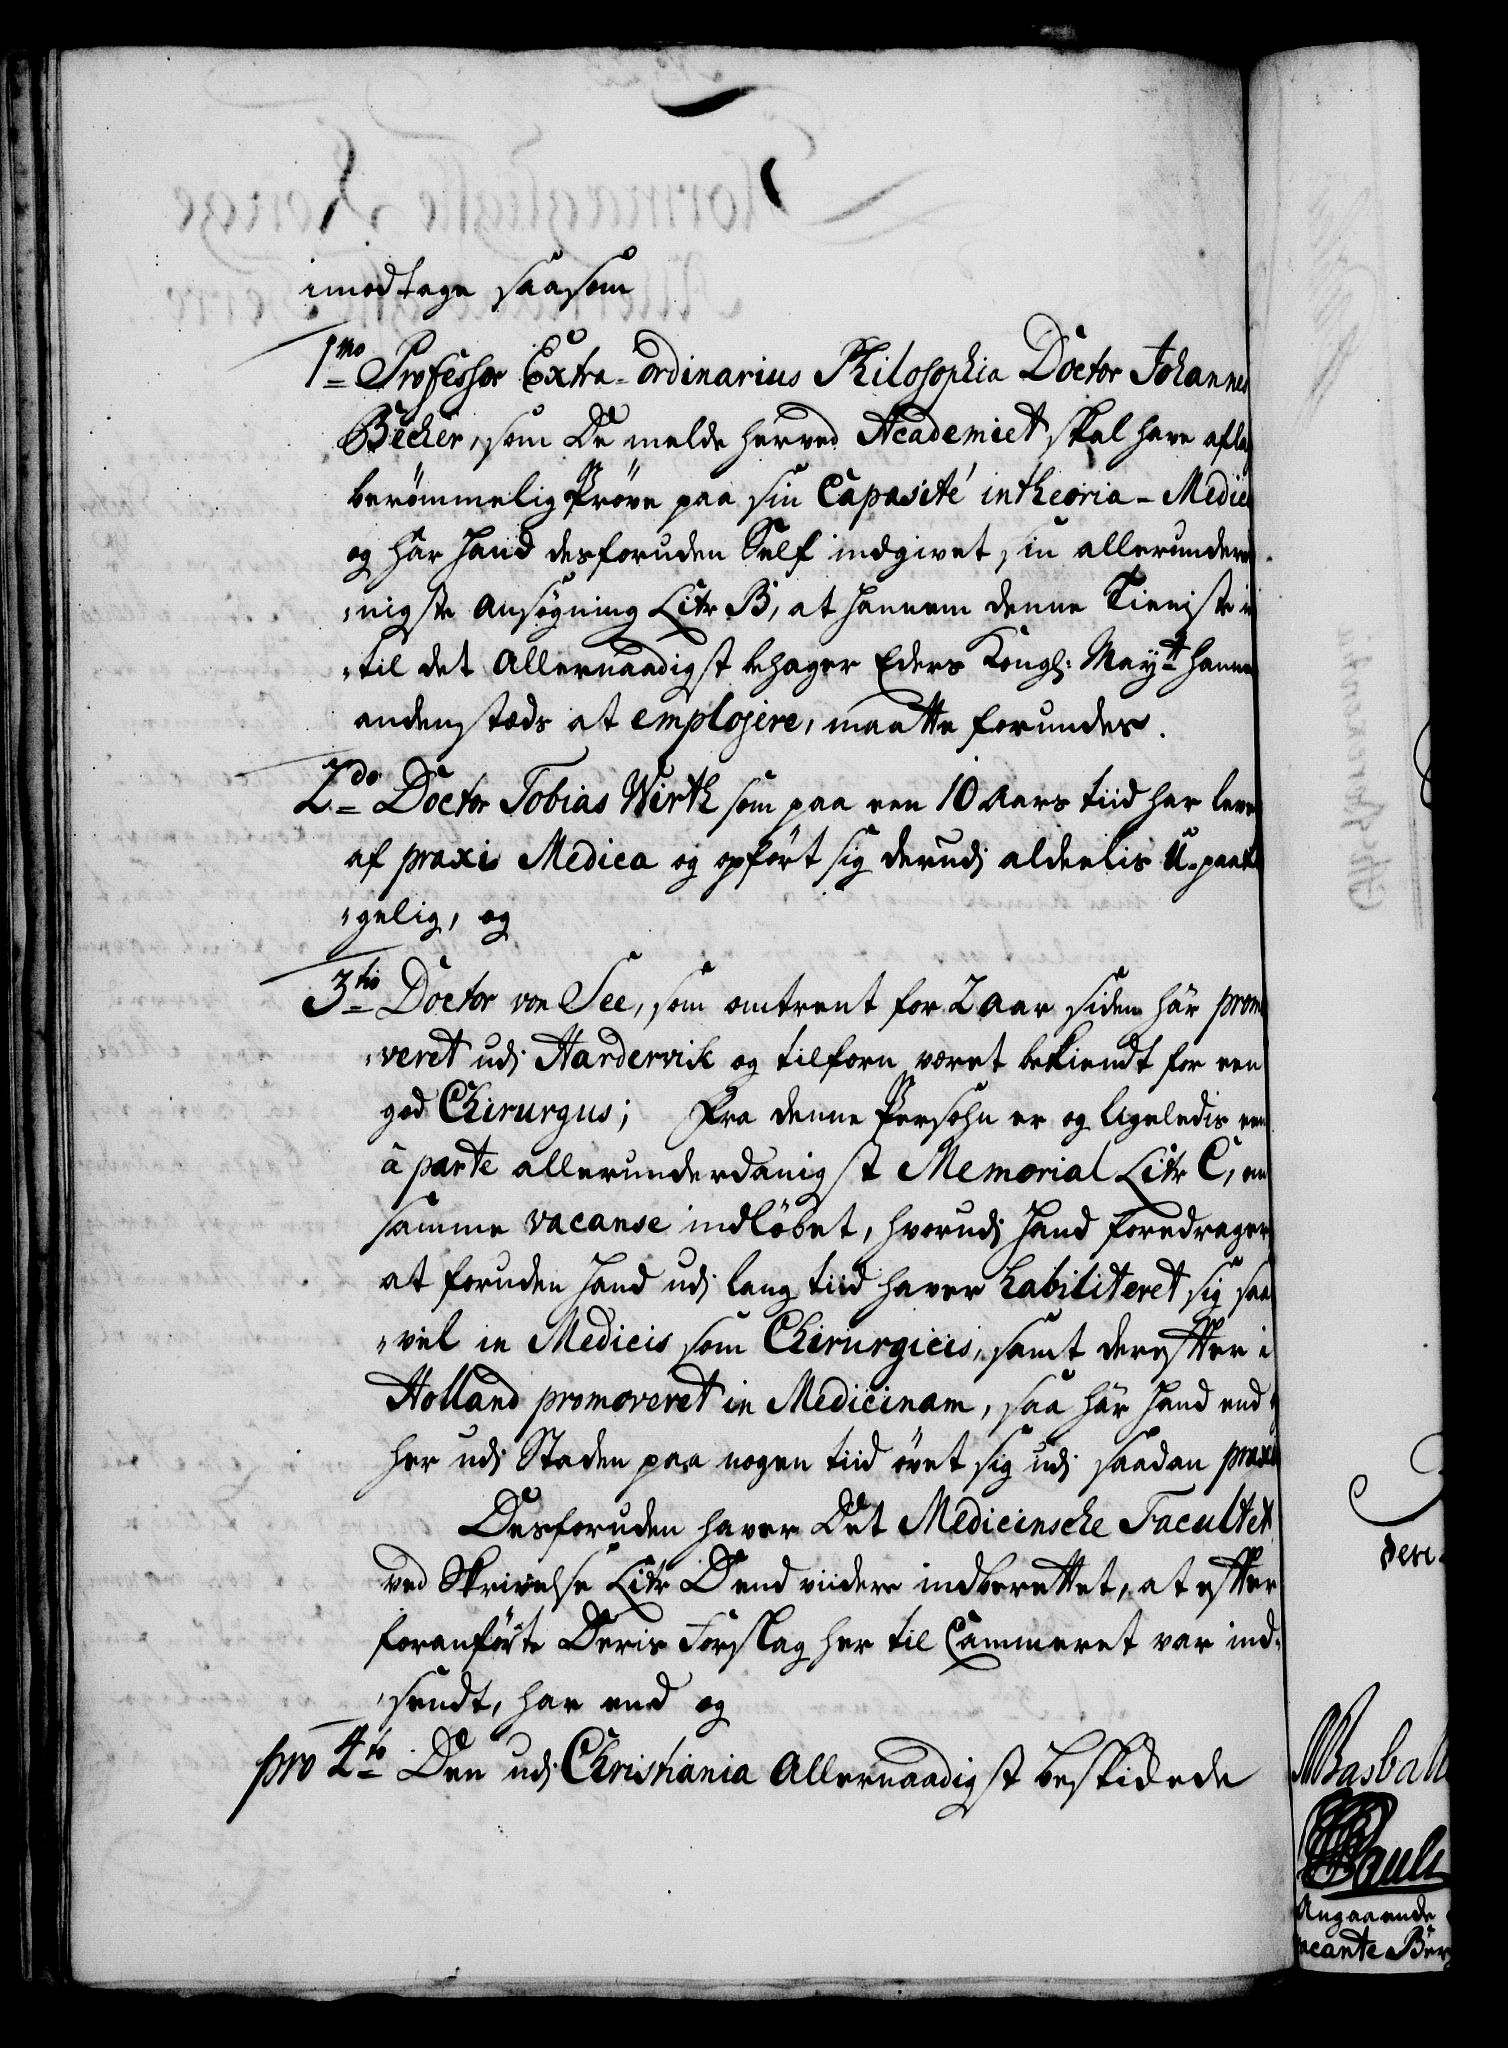 imodtage saasom
1mo Professor Extra-ordinarius Philosophia Doctor Johannes
Becher, som De melde herved Academiet skal have afla
berömmelig Pröve paa sin Capasité in theoria-Medic
og här hand desforuden Self indgivet sin allerunder
nigste Ansögning Litr B, at hannem denne Tieniste
til det Allernaadigst behager Eders Kongl: Maytt hann
andenstæds at emplojere, maatte forundes.
2do Doctor Tobias Wirth som paa een 10 Aars tiid har leve
af praxi Medica og opfört sig derudj aldeelis U-paak
gelig, og
3tio Doctor von See, som omtrent for 2 Aar siden här promo
veret udj Hardervik og tilforn været bekiendt for een
god Chirurgus; Fra denne Persohn er og ligeledis een
à parte allerunderdanigst Memorial Litr C, om
samme vacanse indlöbet, hvorudj hand foredrager
at foruden hand udj lang tiid haver habiliteret sig saa
vel in Medicis som Chirurgicis, samt derefter i
Holland promoveret in Medicinam, saa här hand end
her udj Staden paa nogen tiid övet sig udj saadan praxi
Desforuden haver Det Medicinsche Facultet
ved Skrivelse Litr D end viidere indberettet, at efter
foranförte Deris Forslag her til Cammeret var ind-
sendt, har end og
pro 4to Den udj Christiania Allernaadigst beskickede
Angaaende
vacante Ber